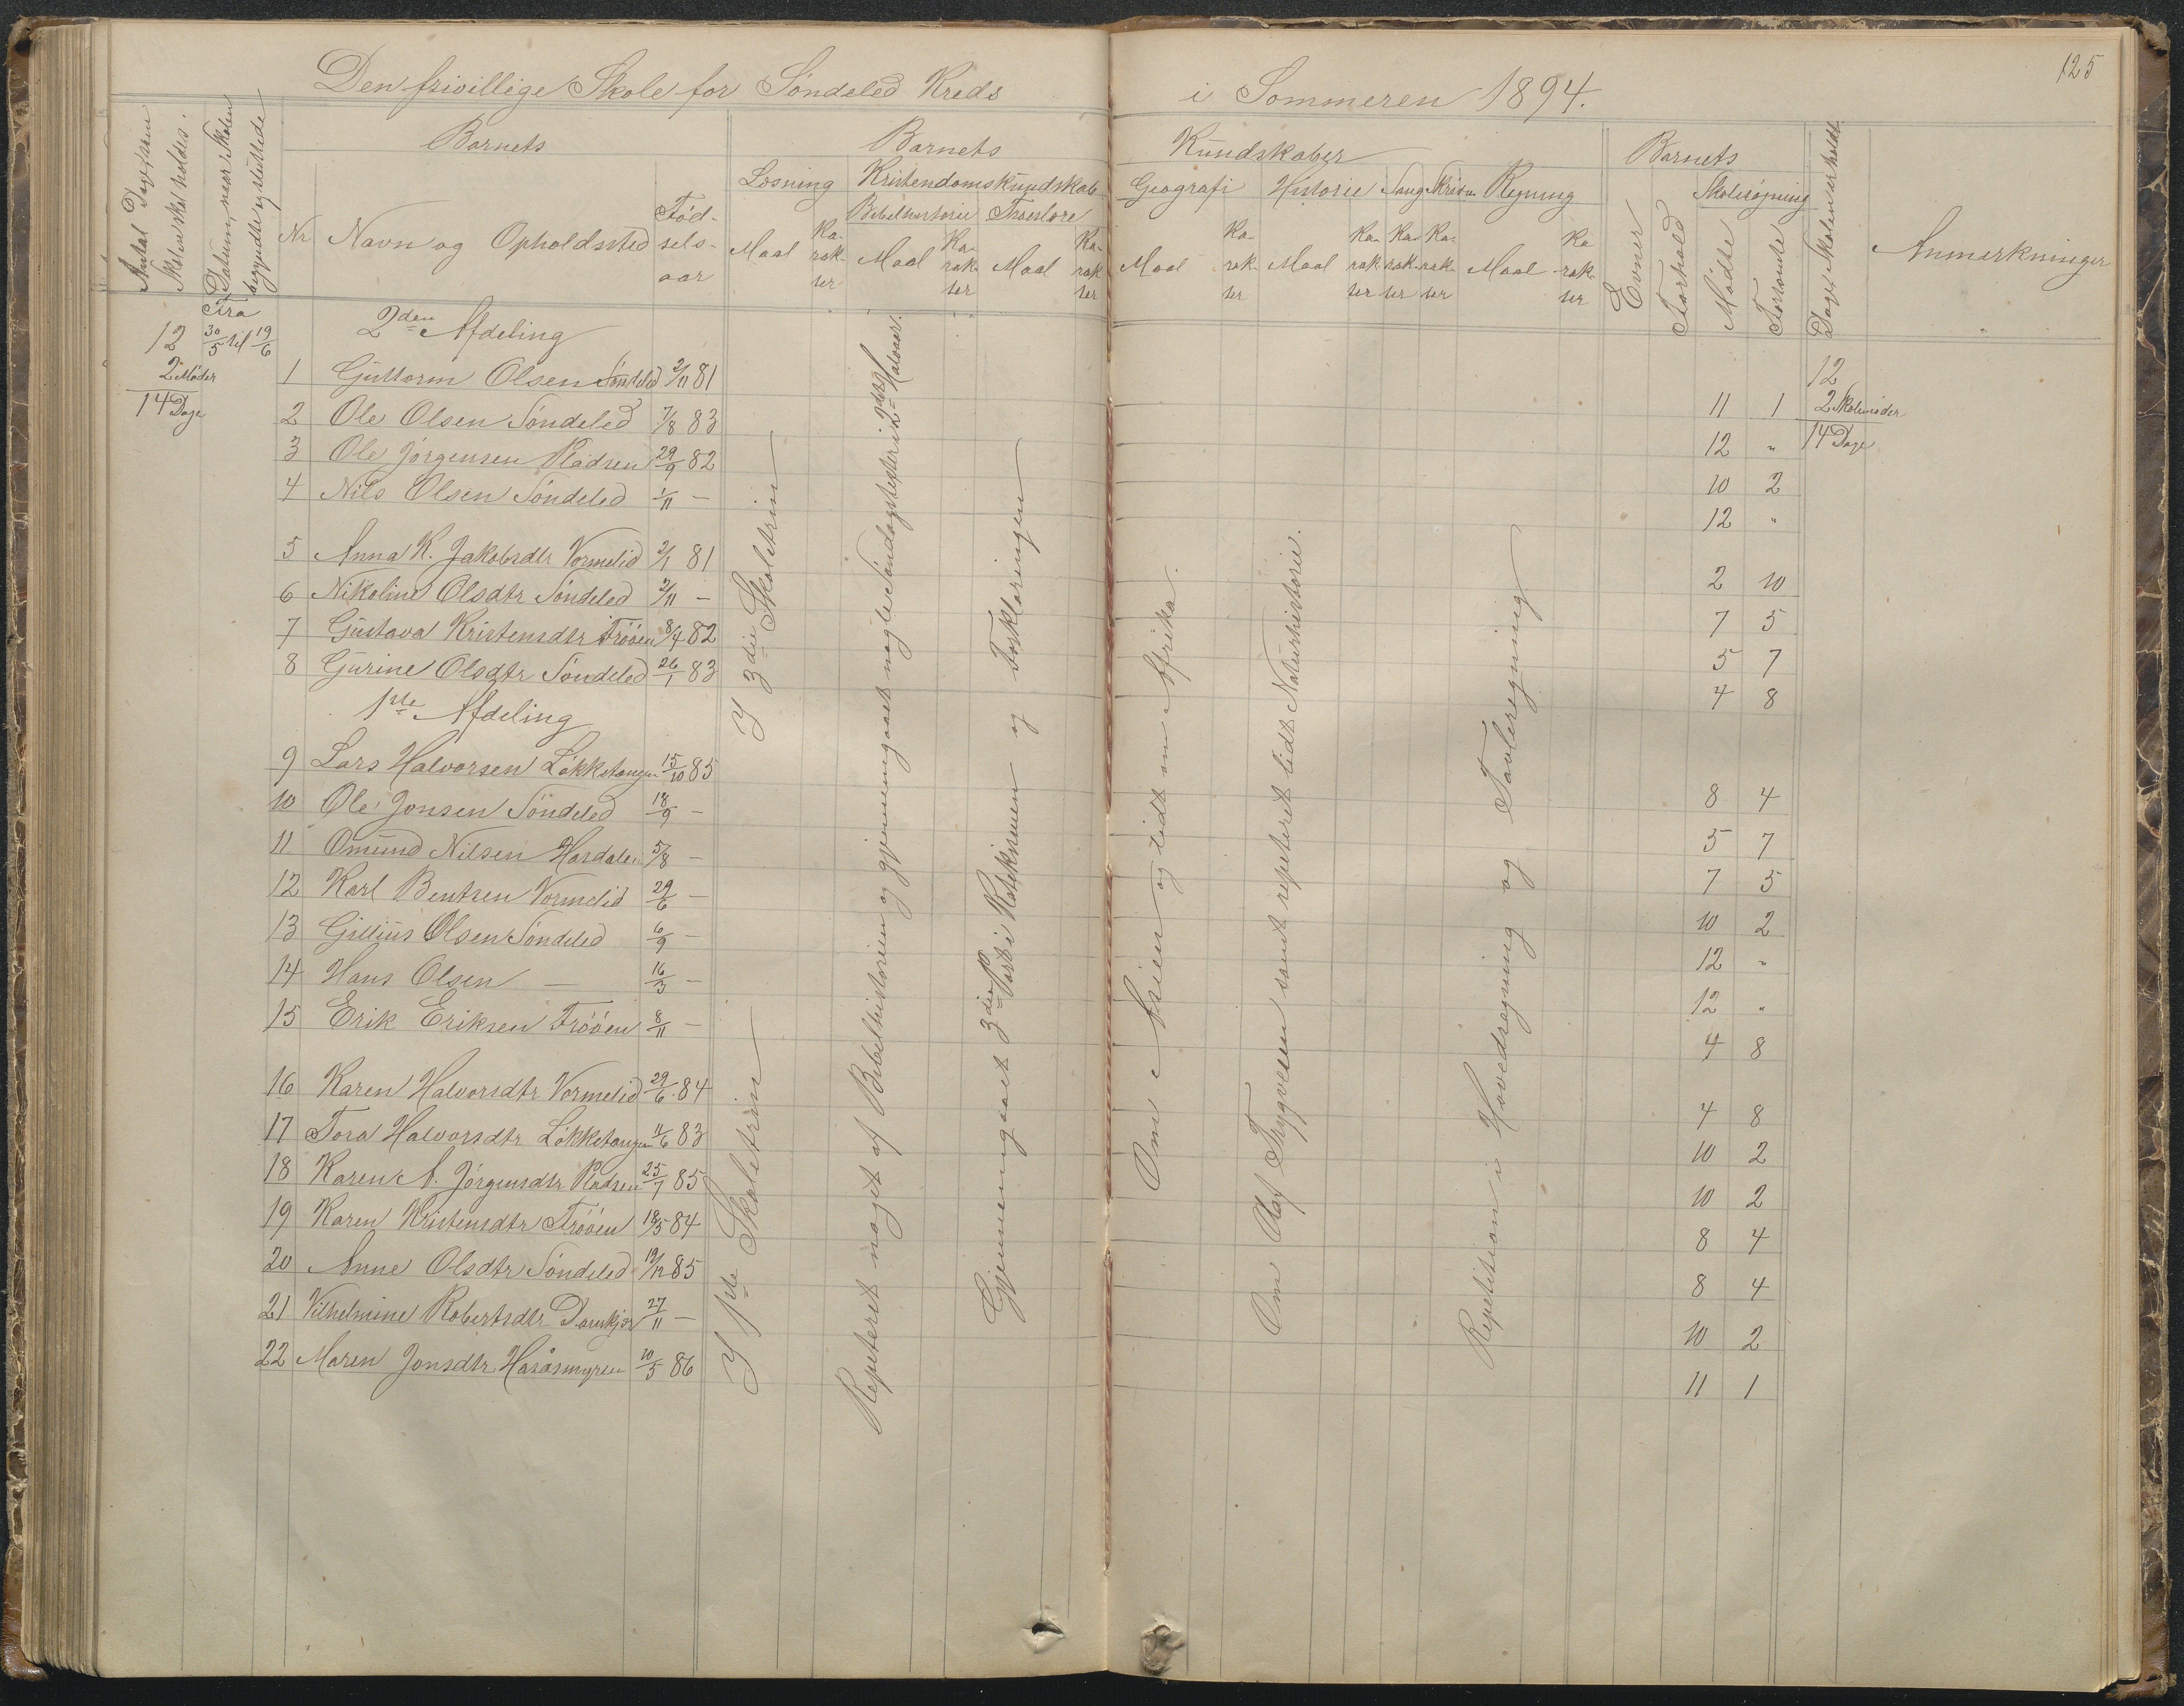 125
Den frivillige Skole for Söndeled Kreds i Sommeren 1894.
Antal Dage, som Skolen skal holdes.
Datum, naar Skolen begyndte og sluttede
Barnets
Nr. Navn og Opholdssted Födselsaar
Barnets Kundskaber
Læsning Kristendomskundskab Geografi Historie Sang Skrivn. Regning
Bibelhistorie Troeslære
Maal Karakter Maal Karakter Maal Karakter Maal Karakter Maal Karakter Karakter Karakter Maal Karakter
Barnets
Evner Forhold Skolesøgning
Mødte Forsømte
Dage, Skolen er holdt
Anmerkninger
12 Fra 30/5 til 19/6
2 Møder
14 Dage
2den Afdeling
1 Guttorm Olsen Søndeled 2/11 81
2 Ole Olsen Söndeled 7/8 83
3 Ole Jörgensen Pladsen 29/9 82
4 Nils Olsen Söndeled 1/11 —
5 Anna K. Jakobsdtr Vormelid 2/1 81
6 Nikoline Olsdtr Söndeled 2/11 —
7 Gustava Kristensdtr Tröoen 8/4 82
8 Gurine Olsdtr Söndeled 26/1 83
1ste Afdeling
9 Lars Halvorsen Lökketangen 15/10 85
10 Ole Jonsen Söndeled 18/9 —
11 Omund Nilsen Hasdalen 5/8 —
12 Karl Bentsen Vormelid 29/6 —
13 Gillius Olsen Söndeled 6/9 —
14 Hans Olsen — 16/3 —
15 Erik Eriksen Tröoen 8/11 —
16 Karen Halvorsdtr Vormelid 29/6 84
17 Tora Halvorsdtr Lökketangen 11/6 83
18 Karen A. Jörgensdtr Pladsen 25/7 85
19 Karen Kristensdtr Tröoen 18/5 84
20 Anne Olsdtr Söndeled 19/12 85
21 Vilhelmine Robertsdtr 27/11 —
22 Maren Jonsdtr Hasåsmyren 10/5 86
I 3die Skoletrin
I 1ste Skoletrin
Repeteret noget af Bibelhistorien og gjennemgaaet nogle Söndagstexter i 1ste Halvaar.
Gjennemgaaet 3die Part i Katekismen og Forklaringen
Om Asien og lidt om Afrika.
Om Olaf Trygvesen samt repeteret lidt Naturhistorie.
Repetition i Hovedregning og Tavleregning
12
2 Skolemøder
14 Dage
11 1
12 "
10 2
12 "
2 10
7 5
5 7
4 8
8 4
5 7
7 5
10 2
12 "
12 "
4 8
4 8
10 2
10 2
8 4
8 4
10 2
11 1